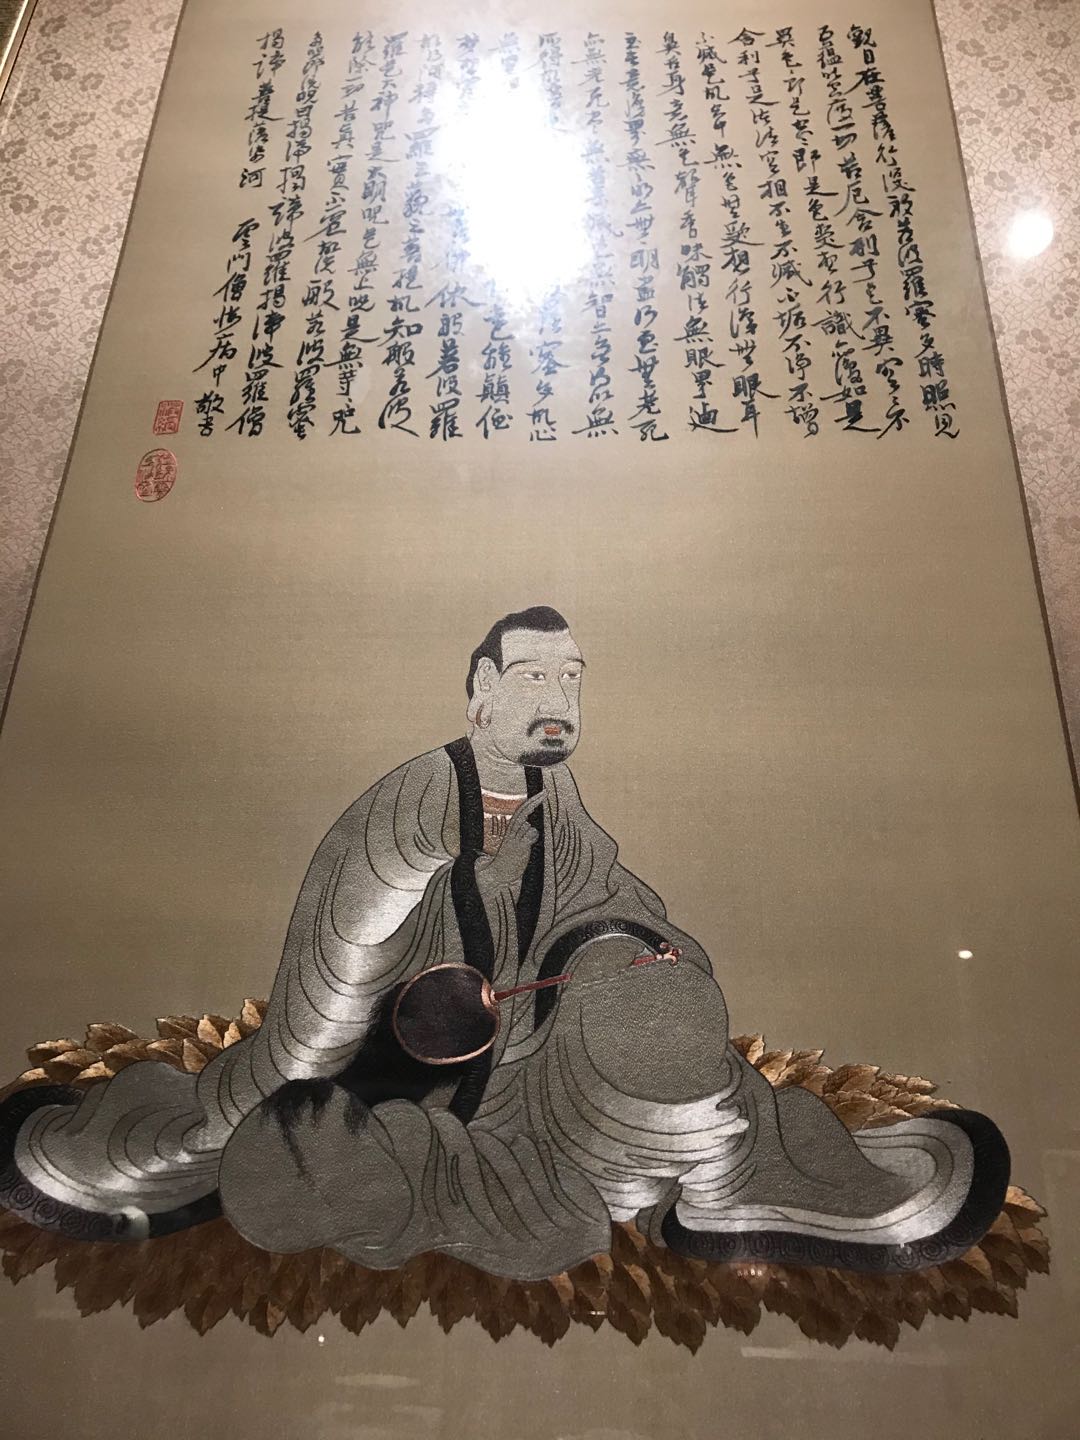 觀自在菩薩行深般若波羅蜜多時照見
五蘊皆空度一切苦厄舍利子色不異空空不
異色色即是空空即是色受想行識亦復如是
舍利子是諸法空相不生不滅不垢不淨不增
不減是故空中無色無受想行識無眼耳
鼻舌身意無色聲香味觸法無眼界迺
至無意識界無無明亦無無明盡乃至無老死
亦無老死盡無苦集滅道無智亦無得以無
所得故 薩埵 蜜多故心
無罣 遠離顛倒
夢想 依般若波羅
蜜多故得阿耨多羅三藐三菩提故知般若波
羅蜜多是大神咒是大明咒是無上咒是無等等咒
能除一切苦真實不虛故說般若波羅蜜
多咒即說咒曰揭諦揭諦波羅揭諦波羅僧
揭諦菩提薩婆訶
雲門僧 病中敬書